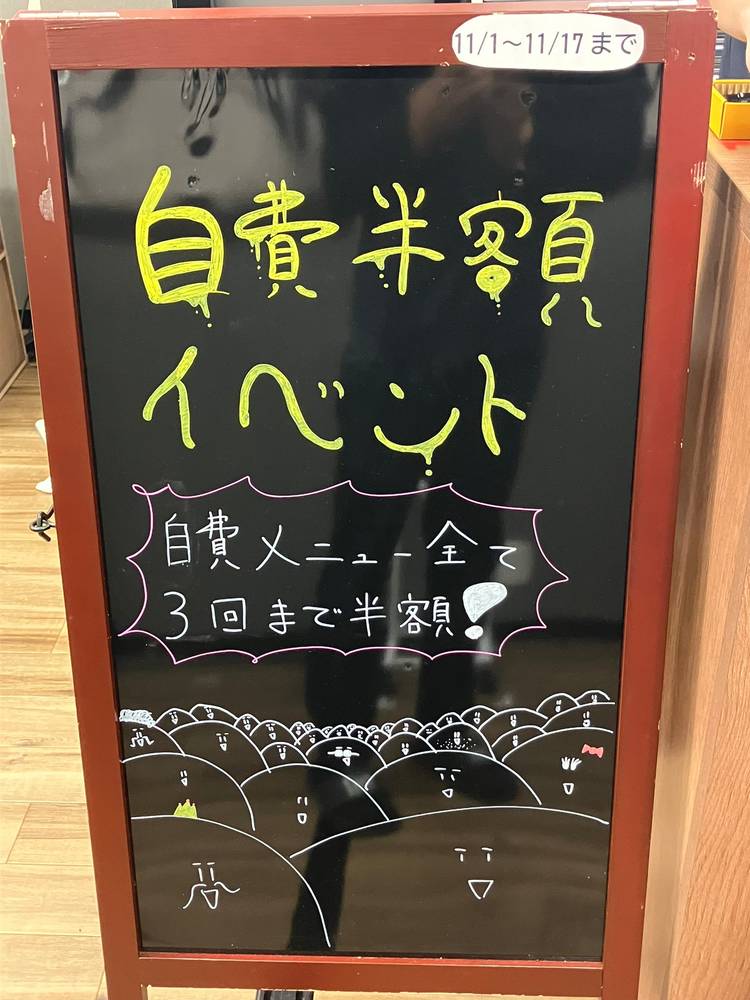 11/1〜11/17まで
自費半額
イベント
自費メニュー全て
3回まで半額!